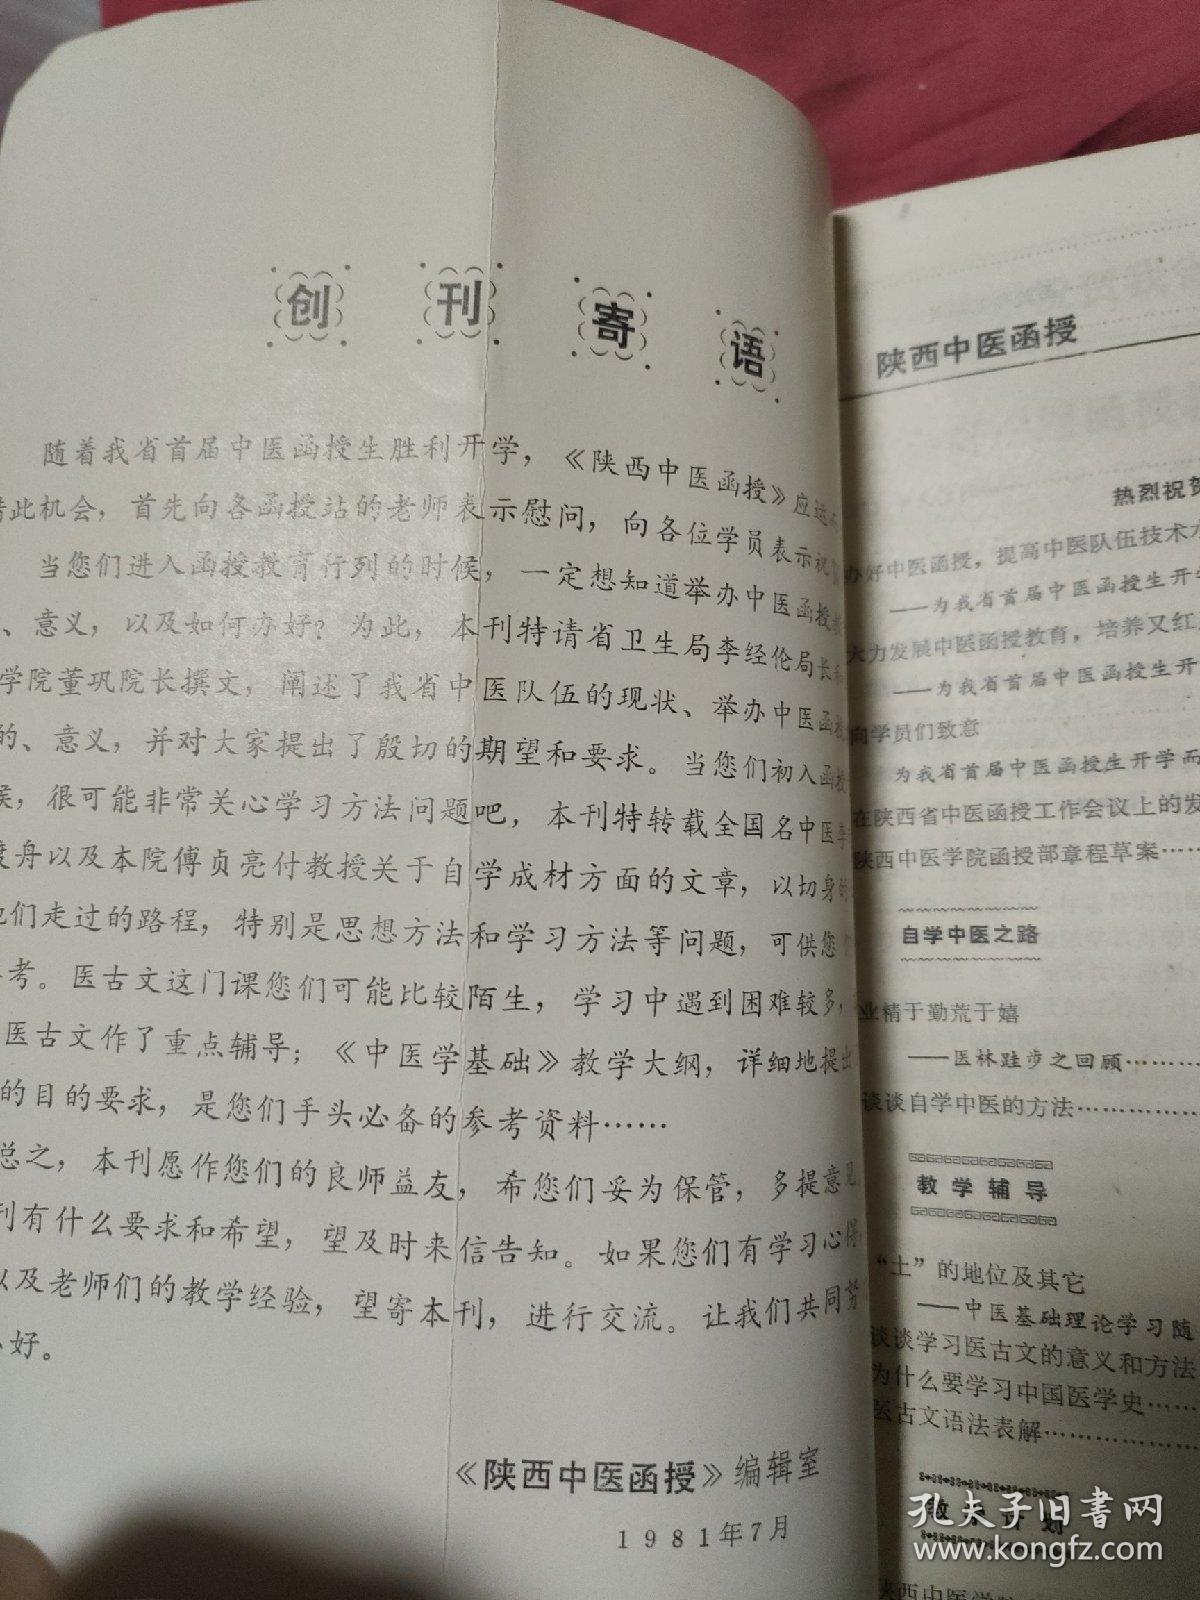 创刊寄语
随着我省首届中医函授生胜利开学，《陕西中医函授》应运
此机会，首先向各函授站的老师表示慰问，向各位学员表示祝
当您们进入函授教育行列的时候，一定想知道举办中医函授
、意义，以及如何办好？为此，本刊特请省卫生局李经伦局长
学院董巩院长撰文，阐述了我省中医队伍的现状、举办中医函
的、意义，并对大家提出了殷切的期望和要求。当您们初入函授
候，很可能非常关心学习方法问题吧，本刊特转载全国名中医
渡舟以及本院傅贞亮付教授关于自学成材方面的文章，以切身
他们走过的路程，特别是思想方法和学习方法等问题，可供您
考。医古文这门课您们可能比较陌生，学习中遇到困难较多，
医古文作了重点辅导；《中医学基础》教学大纲，详细地提出
的目的要求，是您们手头必备的参考资料……
总之，本刊愿作您们的良师益友，希您们妥为保管，多提意见
刊有什么要求和希望，望及时来信告知。如果您们有学习心得
以及老师们的教学经验，望寄本刊，进行交流。让我们共同努
好。
《陕西中医函授》编辑室
1981年7月
陕西中医函授
热烈祝贺
办好中医函授，提高中医队伍技术水
——为我省首届中医函授生开学
大力发展中医函授教育，培养又红
——为我省首届中医函授生开
向学员们致意
为我省首届中医函授生开学而
在陕西省中医函授工作会议上的发
陕西中医学院函授部章程草案……
自学中医之路
业精于勤荒于嬉
——医林跬步之回顾……
谈谈自学中医的方法……
教学辅导
“土”的地位及其它
——中医基础理论学习随
谈谈学习医古文的意义和方法
为什么要学习中国医学史……
医古文语法表解……
教学计划
陕西中医学院
孔夫子旧书网
www.kongfz.com